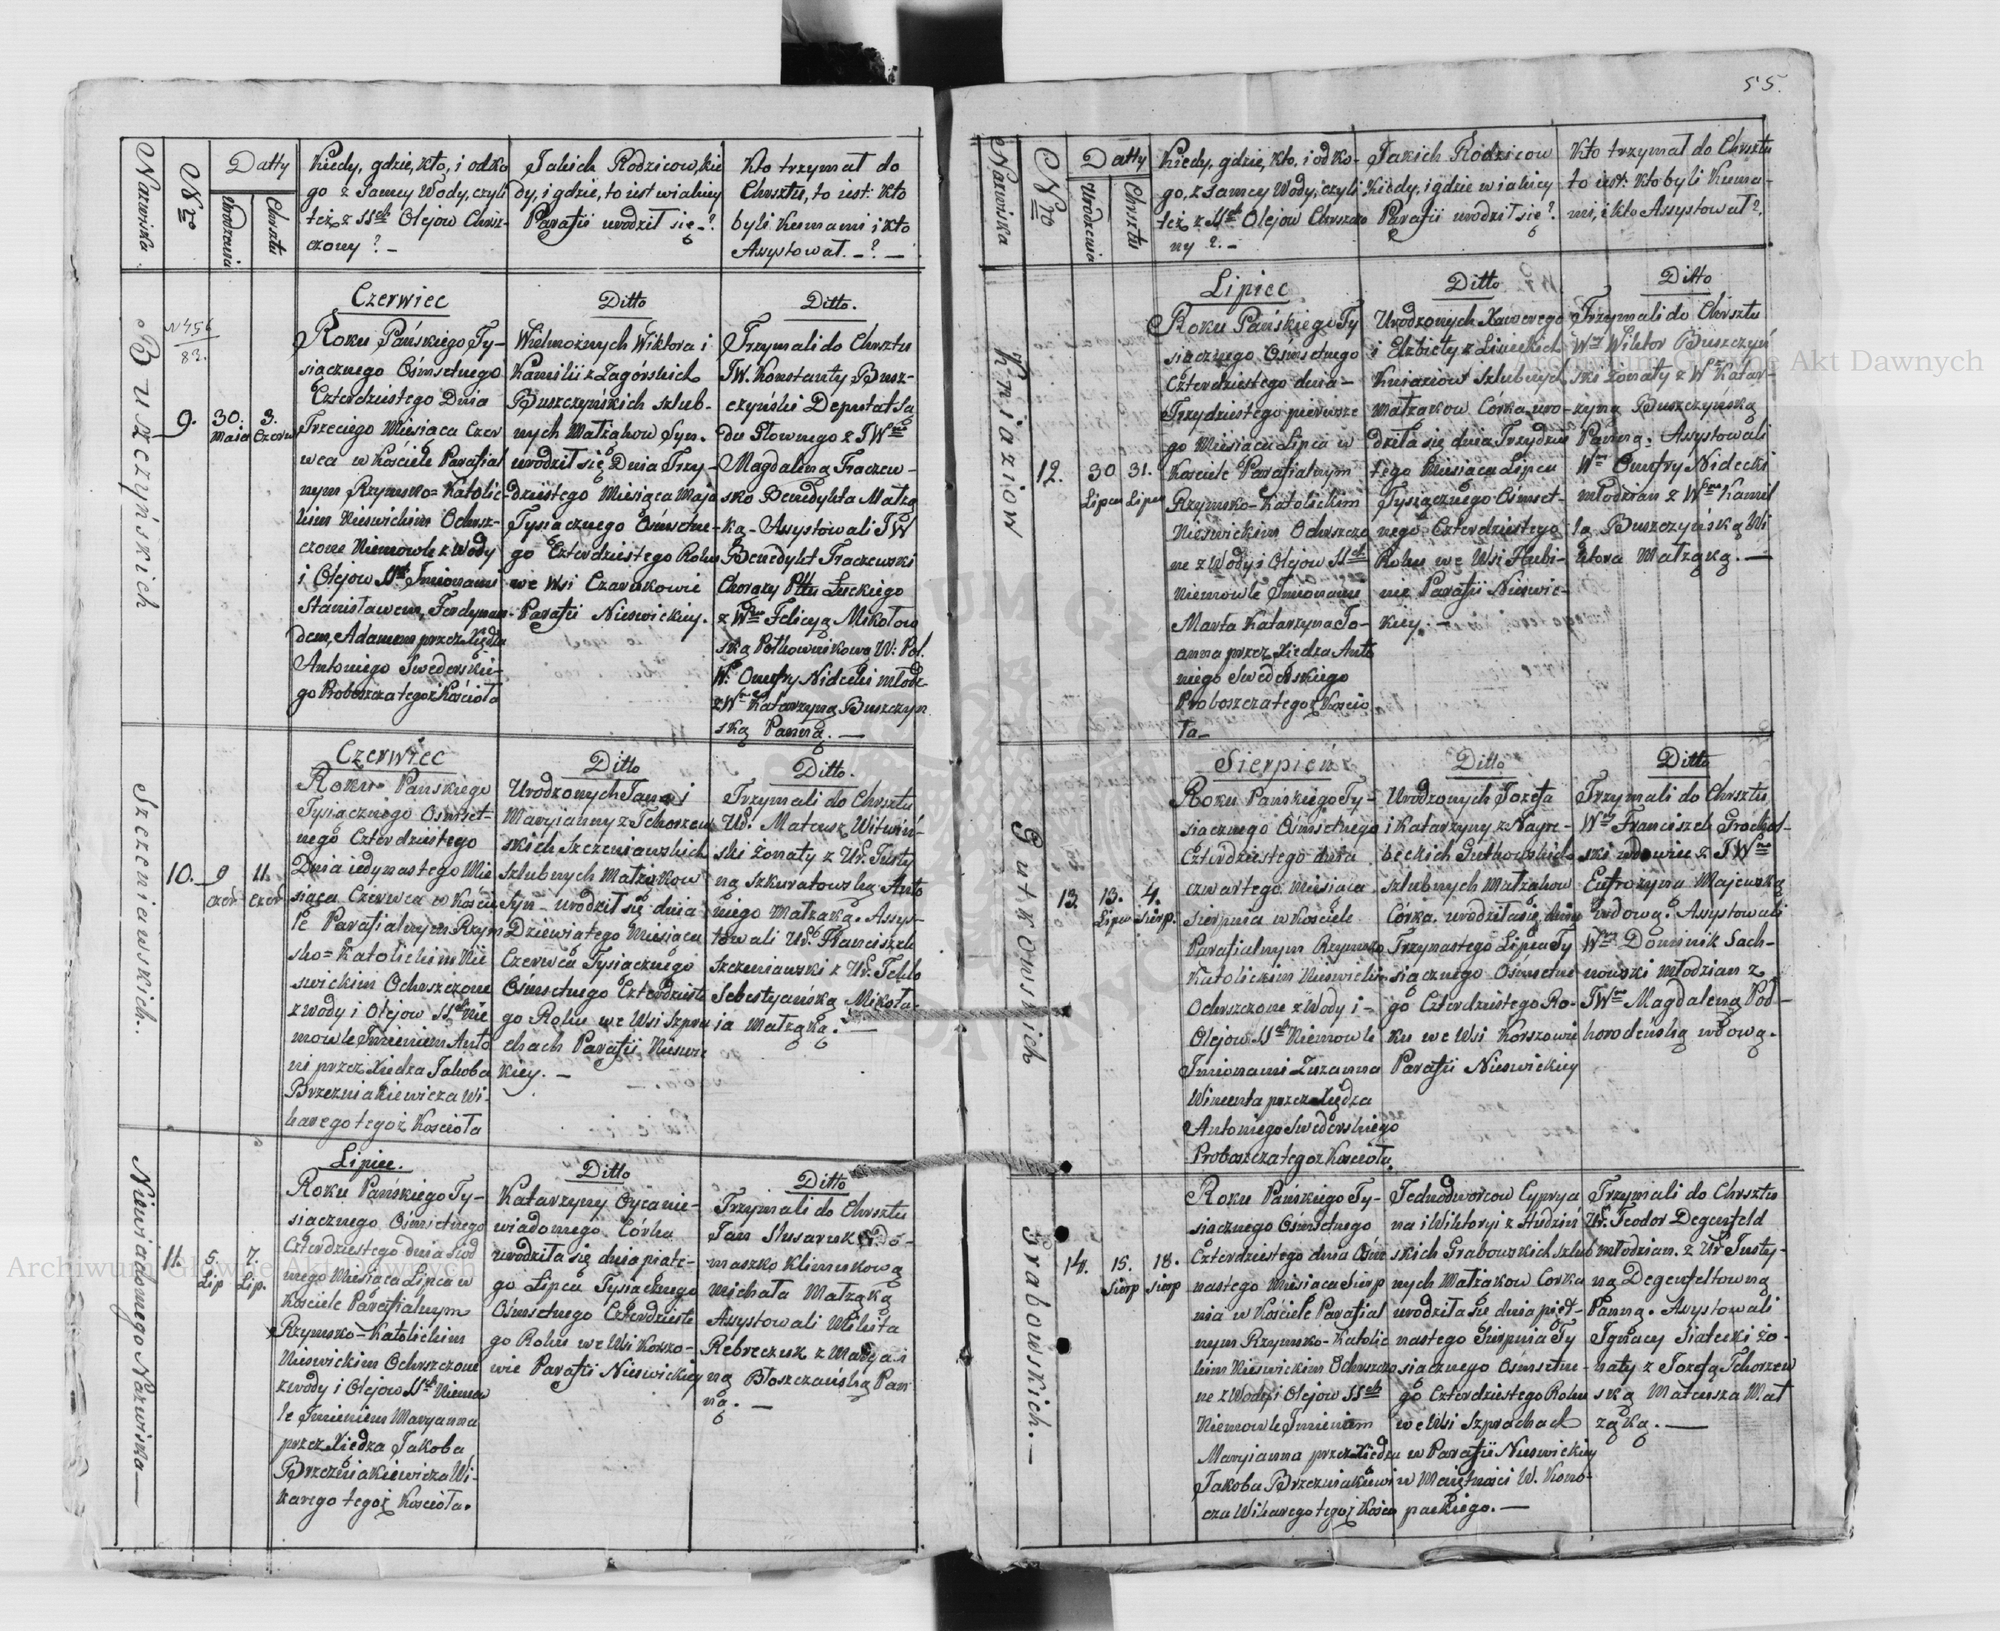 55.
Nazwiska.
Nro
Datty
Urodzenia
Chrztu
Kiedy, gdzie, kto, i odko
go z Samey Wody, czyli
też z SSch Olejow Chrzs-
czony? —
Jakich Rodzicow, kie
dy, i gdzie, to iest w ialniey
Parafii urodził się —?
Kto trzymał do
Chrsztu, to iest: kto
byli Kumami i kto
Assystował. —? —
Buszczyńskich
N 456
82.
9.
30.
Maia
3.
Czerw
Czerwiec
Roku Pańskiego Ty-
siącznego Ośmsetnego
Czterdziestego Dnia
Trzeciego Miesiąca Czer
wca w Kościele Parafial
nym Rzymsko=Katolic-
kim Nieswickim Ochrsz-
czone Niemowle z Wody
i Olejow SSch Imionami
Stanisławem, Ferdynan-
dem, Adamem przez Xiędza
Antoniego Swederskie-
go Proboszcza tegoż Kościoła
Ditto
Wielmożnych Wiktora i
Kamilii z Zagorskich
Buszczynskich szlub-
nych Małżąkow Syn.
urodził się Dnia Trzy-
dziestego Miesiąca Maja
Tysiącznego Ośmsetne-
go Czterdziestego Roku
we Wsi Czarukowie
Parafii Nieswickiey.
Ditto.
Trzymali do Chrsztu
JW. Konstanty Busz-
czyński Deputat Są
du Głownego z JWną
Magdaleną Traczew-
sko Benedykta Małżą
ką — Assystowali JW
Benedykt Traczewski
Chorąży Pttu Łuckiego
z Wną Felicyą Mikołow
ską Połkownikową W: Pol.
W. Onufry Nidecki młodz-
z Wną Katarzyną Buszczyn
ską Panną. —
Szczeniawskich.
10.
9
czer
11.
czer
Czerwiec
Roku Pańskiego
Tysiącznego Ośmset-
nego Czterdziestego
Dnia iedynastego Mie
siąca Czerwca w Kościo
le Parafialnym Rzym
sko=Katolickim Nie
swickim Ochrszczone
z wody i Olejow SSch Nie
mowle Imieniem Anto
ni przez Xiedza Jakoba
Brzezniakiewicza Wi-
karego tegoż Kościoła
Ditto
Urodzonych Jana i
Maryianny z Tchorzew
skich Szczeniawskich
szlubnych Małżąkow
Syn — urodził się dnia
Dziewiątego Miesiąca
Czerwca Tysiącznego
Ośmsetnego Czterdzieste
go Roku we Wsi Szpra
chach Parafii Nieswic
kiey. —
Ditto.
Trzymali do Chrsztu
Ur. Mateusz Witwiń-
ski żonaty z Ur. Justy
ną Szkuratowską Anto
niego Małżąką. Assys-
towali Ur. Franciszek
Szczeniawski z Ur. Teklo
Sebestyańską Mikoła-
ia Małżąką. —
Niewiadomego Nazwiska —
11.
5.
Lip
7.
Lip.
Lipiec.
Roku Pańskiego Ty-
siącznego Ośmsetnego
Czterdziestego dnia siod
mego Miesiąca Lipca w
Kościele Parafialnym
Rzymsko-Katolickim
Nieswickim Ochrszczone
z wody i Olejow SSch Niemow
le Imieniem Maryanna
przez Xiedza Jakoba
Brzezniakiewicza Wi-
karego tegoż Kościoła.
Ditto
Katarzyny Oycanie-
wiadomego Córka
urodziła się dnia piąte-
go Lipca Tysiącznego
Ośmsetnego Czterdzieste
go Roku we Wsi Korszo-
wie Parafii Nieswickiey
Ditto
Trzymali do Chrsztu
Jan Slusaruk z Do-
maszko Klimukową
Michała Małżąką
Assystowali Wikita
Rebreczuk z Maryan
ną Błoszczańską Pan
ną. —
Nazwiska
Nro
Datty
Urodzenia
Chrztu
Kiedy, gdzie, kto, i odko-
go, z Samey Wody, czyli
też z SSch Olejow Chrszczo
ny?. —
Jakich Rodzicow
Kiedy, i gdzie w ialniey
Parafii urodził się?.
Kto trzymał do Chrsztu
to iest: kto byli Kuma-
mi, i kto Assystował?.
Kniaziow
12.
30
Lipca
31.
Lipca
Lipiec
Roku Pańskiego Ty
siącznego Ośmsetnego
Czterdziestego dnia —
Trzydziestego pierwsze
go Miesiąca Lipca w
Kościele Parafialnym
Rzymsko-Katolickim
Nieswickim Ochrszczo
ne z Wody i Olejow SSch
Niemowle Imionami
Marta Katarzyna Jo-
anna przez Xiedza Anto
niego Swederskiego
Proboszcza tegoż Kościo
ła —
Ditto
Urodzonych Xawerego
i Elżbiety z Linieckich
Kniaziow Szlubnych
Małżąkow Córka uro-
dziła się dnia Trzydzie
tego Miesiąca Lipca
Tysiącznego Ośmset-
nego Czterdziestego
Roku we Wsi Hubi-
nie Parafii Nieswic-
kiey. —
Ditto
Trzymali do Chrsztu
Wny Wiktor Buszczyń
ski żonaty z Wną Katar-
zyną Buszczynską
Panną. Assystowali
Wny Onufry Nidecki
młodzian z Wną Kamil
lą Buszczyńską Wi
ktora Małżąką. —
Gutkowskich
13.
13.
Lipca
4.
Sierp.
Sierpień
Roku Pańskiego Ty-
siącznego Ośmsetnego
Czterdziestego dnia
czwartego Miesiąca
Sierpnia w Kościele
Parafialnym Rzymsko
Katolickim Nieswickim
Ochrszczone z Wody i —
Olejow SSch Niemowle
Imionami Zuzanna
Wincenta przez Xiędza
Antoniego Swederskiego
Proboszcza tegoż Kościoła.
Ditto
Urodzonych Jozefa
i Katarzyny z Nayre-
beckich Gutkowskich
szlubnych Małżąkow
Córka. urodziła się dnia
Trzynastego Lipca Ty
siącznego Ośmsetne
go Czterdziestego Ro-
ku we Wsi Korszowie
Parafii Nieswickiey
Ditto
Trzymali do Chrsztu
Wny Franciszek Grochol-
ski wdowiec z JWną
Eufrozyną Majewską
Wdową. Assystowali
Wny Dominik Sach-
nowski młodzian z
JWną Magdaleną Pod-
horodeńską wdową.
Grabowskich. —
14.
15.
Sierp
18.
Sierp
Roku Pańskiego Ty-
siącznego Ośmsetnego
Czterdziestego dnia Ośm
nastego Miesiąca Sierp
nia w Kościele Parafial
nym Rzymsko-Katolic
kim Nieswickim Ochrszczo
ne z Wody i Olejow SSch
Niemowle Imieniem
Maryianna przez Xiedza
Jakoba Brzezniakiewi
cza Wikarego tegoż Kościo
Jednodworcow Cyprya
na i Wiktoryi z Hudziń
skich Grabowskich Szlub
nych Małżąkow Corka
urodziła sie dnia pięt-
nastego Sierpnia Ty
siącznego Ośmsetne-
go Czterdziestego Roku
we Wsi Szprachach
w Parafii Nieswickiey
w Maiętności W. Kono-
packiego. —
Trzymali do Chrsztu
Ur. Teodor Degenfeld
młodzian. z Ur Justy-
ną Degenfeltowną
Panną. Assystowali
Ignacy Siatecki żo-
naty z Jozefą Tchorzew
ską Mateusza Mał
żąką. —
Archiwum Główne Akt Dawnych
Archiwum Główne Akt Dawnych